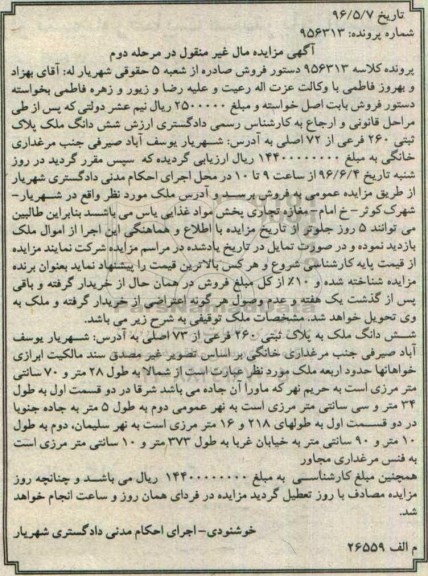 تاریخ ۹۶/۵/۷
شماره پرونده: ۹۵۶۳۱۳
آگهی مزایده مال غیر منقول در مرحله دوم
پرونده کلاسه ۹۵۶۳۱۳ دستور فروش صادره از شعبه ۵ حقوقی شهریار له: آقای بهزاد
و بهروز فاطمی با وکالت عزت اله رعیت و علیه رضا و زیور و زهره فاطمی بخواسته
دستور فروش بابت اصل خواسته و مبلغ ۲۵۰۰۰۰۰ ریال نیم عشر دولتی که پس از طی
مراحل قانونی و ارجاع به کارشناس رسمی دادگستری ارزش شش دانگ ملک پلاک
ثبتی ۲۶۰ فرعی از ۷۲ اصلی به آدرس: شهریار یوسف آباد صیرفی جنب مرغداری
خانگی به مبلغ ۱۴۴۰۰۰۰۰۰۰۰ ریال ارزیابی گردیده که سپس مقرر گردید در روز
شنبه تاریخ ۹۶/۶/۴ از ساعت ۹ تا ۱۰ در محل اجرای احکام مدنی دادگستری شهریار
از طریق مزایده عمومی به فروش برسد و آدرس ملک مورد نظر واقع در شهریار-
شهرک کوثر- خ امام- مغازه تجاری پخش مواد غذایی یاس می باشد بنابراین طالبین
می توانند ۵ روز جلوتر از تاریخ مزایده با اطلاع و هماهنگی این اجرا از اموال ملک
بازدید نموده و در صورت تمایل در تاریخ یادشده در مراسم مزایده شرکت نمایند مزایده
از قیمت پایه کارشناسی شروع و هر کس بالاترین قیمت را پیشنهاد نماید بعنوان برنده
مزایده شناخته شده و ۱۰٪ از کل مبلغ فروش در همان حال از خریدار گرفته و باقی
پس از گذشت یک هفته و عدم وصول هر گونه اعتراضی از خریدار گرفته و ملک به
وی تحویل خواهد شد. مشخصات ملک توقیفی به شرح زیر می باشد.
شش دانگ ملک به پلاک ثبتی ۲۶۰ فرعی از ۷۳ اصلی به آدرس: شهریار یوسف
آباد صیرفی جنب مرغداری خانگی بر اساس تصویر غیر مصدق سند مالکیت ابرازی
خواهانها حدود اربعه ملک مورد نظر عبارت است از شمالا به طول ۲۸ متر و ۷۰ سانتی
متر مرزی است به حریم نهر که ماورا آن جاده می باشد شرقا در دو قسمت اول به طول
۳۴ متر و سی سانتی متر مرزی است به نهر عمومی دوم به طول ۵ متر به جاده جنوبا
در دو قسمت اول به طولهای ۲۱۸ و ۱۶ متر مرزی است به نهر سلیمان، دوم به طول
۱۰ متر و ۹۰ سانتی متر به خیابان غربا به طول ۳۷۳ متر و ۱۰ سانتی متر مرزی است
به فنس مرغداری مجاور
همچنین مبلغ کارشناسی به مبلغ ۱۴۴۰۰۰۰۰۰۰۰ ریال می باشد و چنانچه روز
مزایده مصادف با روز تعطیل گردید مزایده در فردای همان روز و ساعت انجام خواهد
شد.
خوشنودی- اجرای احکام مدنی دادگستری شهریار
م الف ۲۶۵۵۹